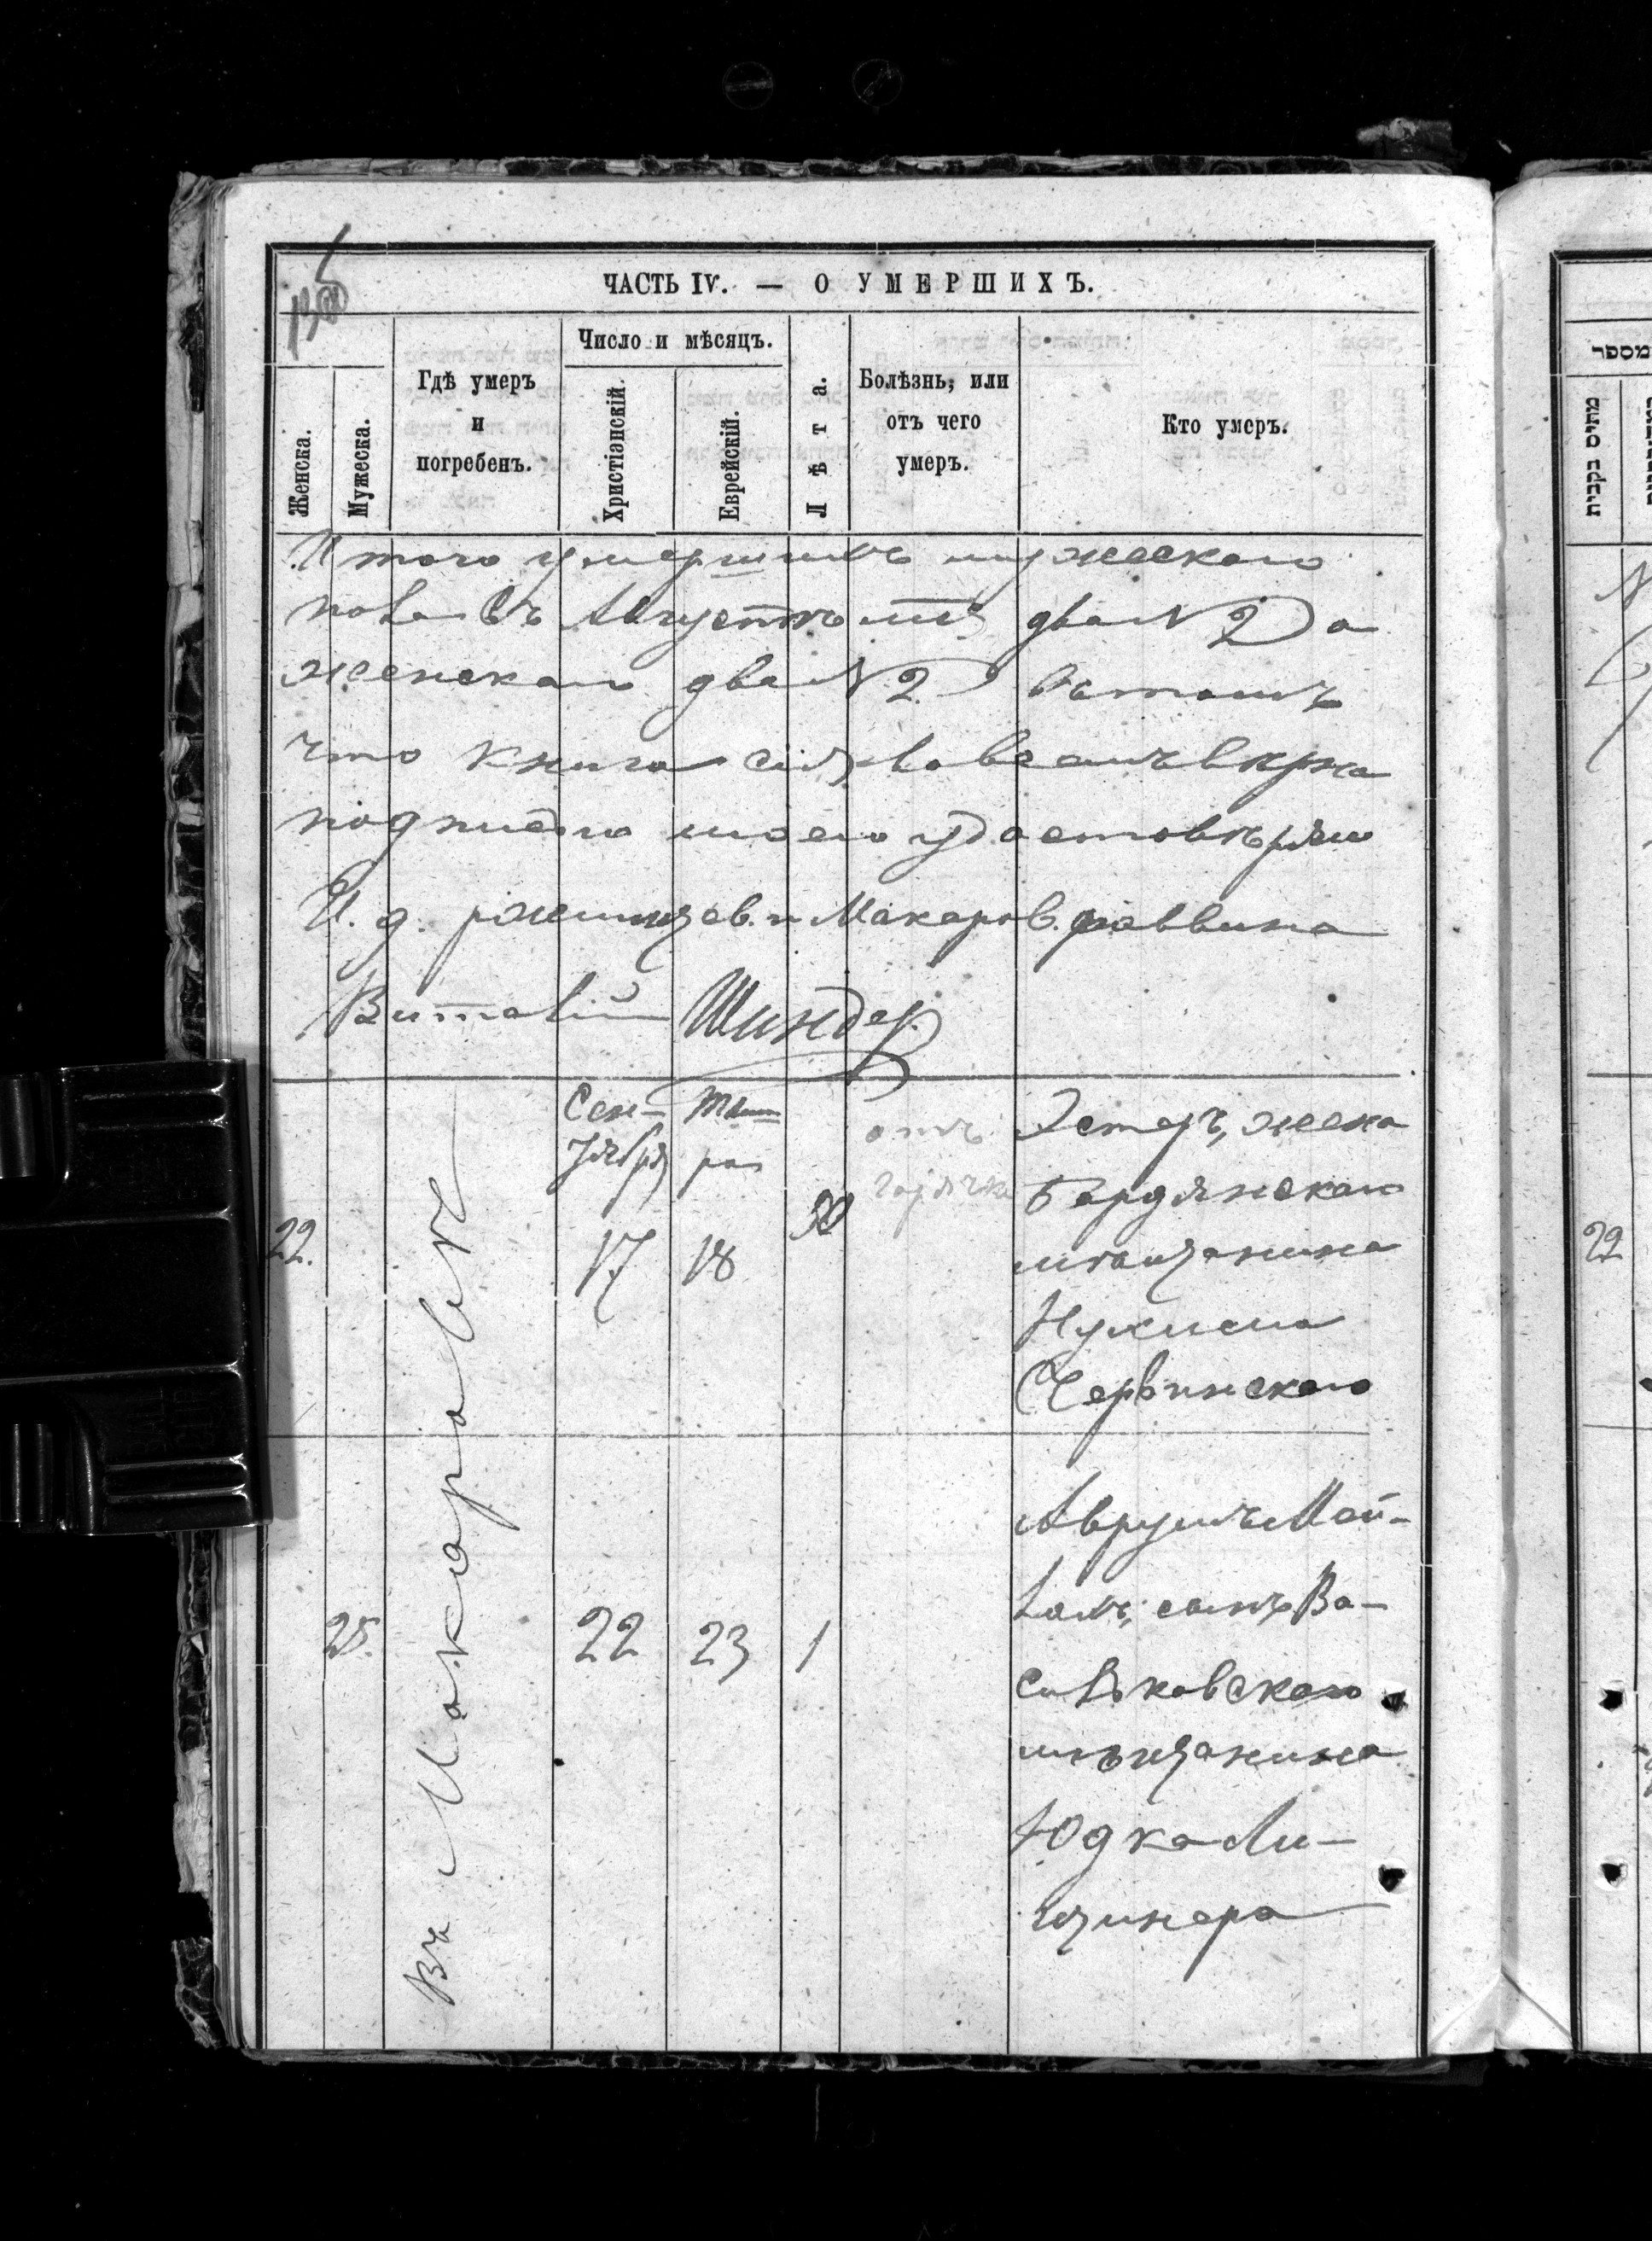 ЧАСТЬ IV. — О УМЕРШИХЪ.
Женска.
Мужеска.
Гдѣ умеръ
и
погребенъ.
Число и мѣсяцъ.
Христіанскій.
Еврейскій.
Лѣта.
Болѣзнь, или
отъ чего
умеръ.
Кто умеръ.
Итого умершихъ мужескаго
пола въ Августѣ два N 2 а
женскаго два N 2 въ томъ
что книга сія во всемъ вѣрна
подписью моею удостовѣряю
И. д. Макаров. раввина
Виталій Шиндер
22.
Въ Макаровѣ
Сен-
тября
17
Тиш
ри
18
отъ
горячки
Эстеръ, жена
Бердянскаго
мѣщанина
Нухима
Червинскаго
25.
22
23
1
Аврумъ Мой-
сынъ Ва-
сильковскаго
мѣщанина
Юдка Ли-
щинера
מספר
22